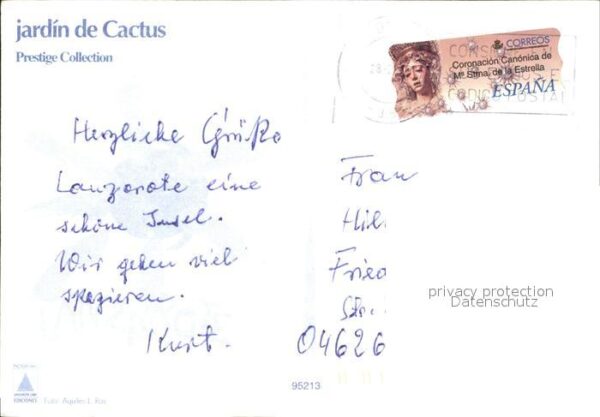 jardín de Cactus
Prestige Collection
CORREOS
Coronación Canónica de
Mª Stma. de la Estrella
ESPAÑA
Herzliche Grüße
Lanzarote eine
schöne Insel.
Wir gehen viel
spazieren.
Kurt.
Frau
Hil
Fried
Str.
04626
privacy protection
Datenschutz
95213